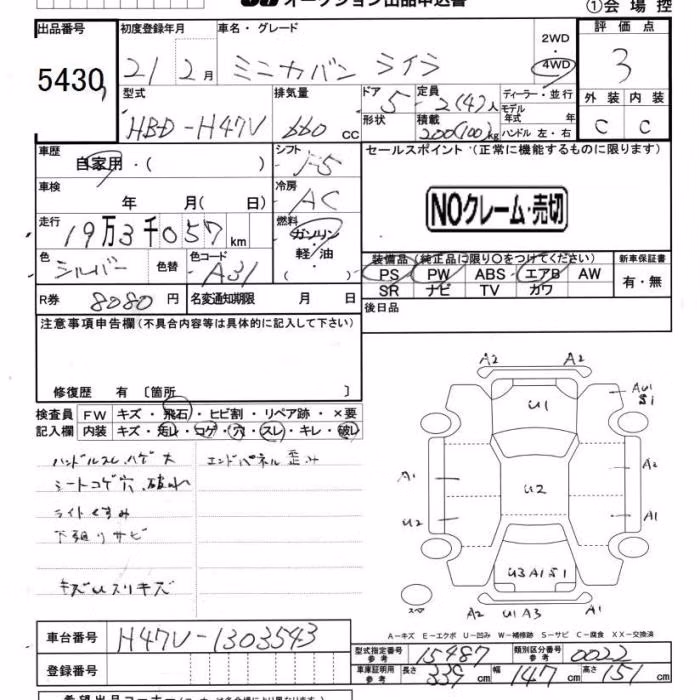 オークション出品申込書
①会場控
出品番号 初度登録年月 車名・グレード 2WD 4WD 評価点
5430 21 2月 ミニカバン ライラ 3
型式 排気量 ドア 定員 ディーラー・並行 外装 内装
HBD-H47V 660cc 5 2(4)人 モデル年式 年 C C
形状 積載 200(100)kg ハンドル 左・右
車歴 自家用・( ) シフト F5 セールスポイント・(正常に機能するものに限ります)
車検 年 月(日) 冷房 AC
NOクレーム・売切
走行 19万3千057km 燃料 ガソリン・軽油 ( )
色 シルバー 色替 色コード A31
装備品(純正品に限り○をつけてください) 新車保証書
PS PW ABS エアB AW 有・無
SR ナビ TV カワ
R券 8080円 名変通知期限 月 日 後日品
注意事項申告欄(不具合内容等は具体的に記入して下さい)
修復歴 有 〔箇所 〕
検査員 FW キズ・飛石・ヒビ割・リペア跡・×要
記入欄 内装 キズ・汚レ・コゲ・穴・スレ・キレ・破レ
ハンドルスレ、ハゲ大 エンドパネル歪み
シートコゲ穴、破れ
ライトくすみ
下廻りサビ
キズUスリキズ
A2 A2
U1 AU1 S1
A1 A2
U2
U2 A1
U3A1S1
スペ A2 U1A3 A1
A-キズ E-エクボ U-凹み W-補修跡 S-サビ C-腐食 XX-交換済
車台番号 H47V-1303543
型式指定番号 参考 15487 類別区分番号 参考 0022
登録番号
車庫証明用 参考 長さ 339cm 幅 147cm 高さ 151cm
希望出品コーナー